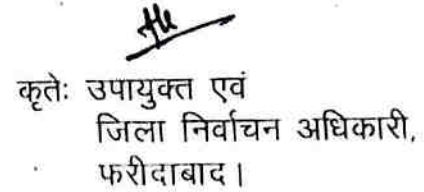 कृतेः उपायुक्त एवं
जिला निर्वाचन अधिकारी,
फरीदाबाद।